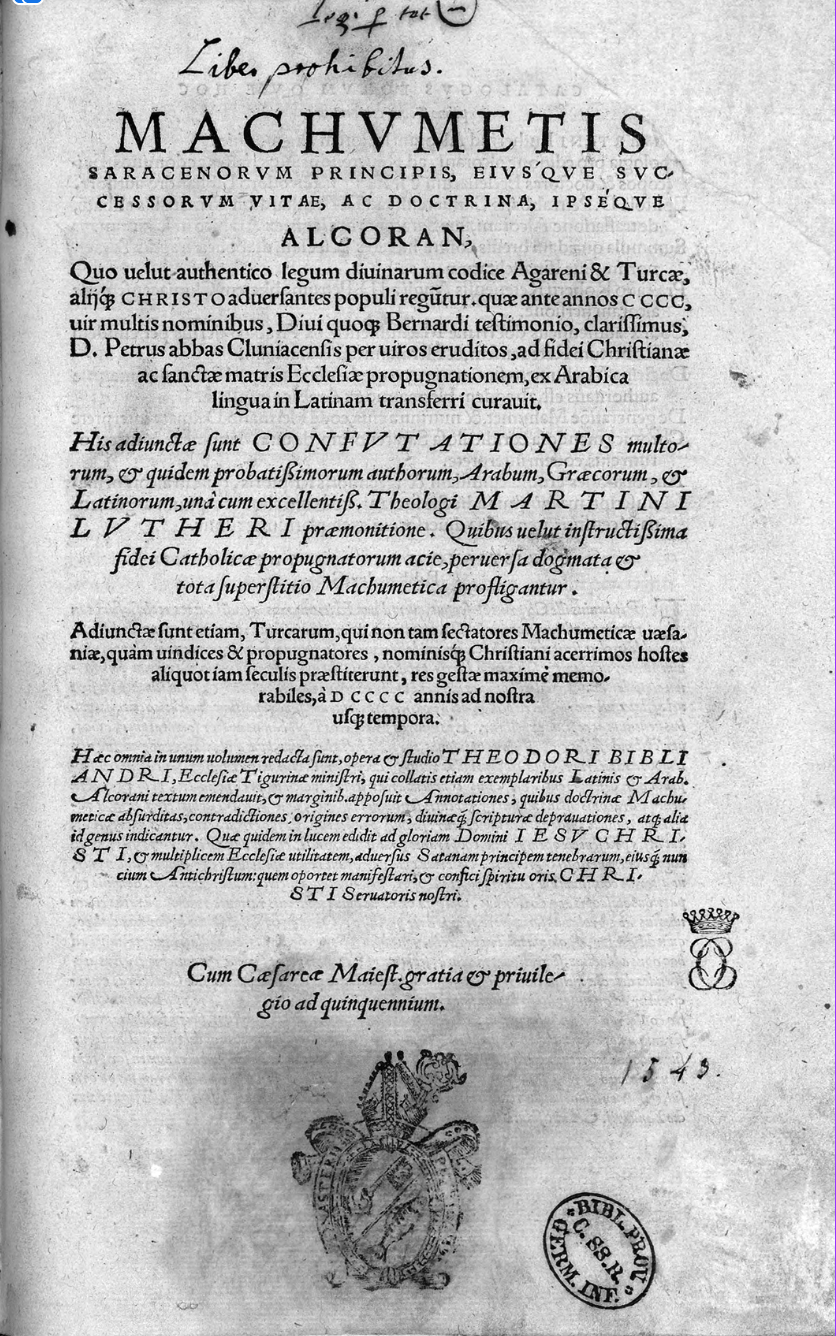 Liber prohibitus.
MACHVMETIS
SARACENORVM PRINCIPIS, EIVS'QVE SVC-
CESSORVM VITAE, AC DOCTRINA, IPSE'QVE
ALCORAN,
Quo uelut authentico legum diuinarum codice Agareni & Turcæ,
alijq́ꝫ CHRISTO aduersantes populi regūtur. quæ ante annos CCCC,
uir multis nominibus, Diui quoqꝫ Bernardi testimonio, clarissimus,
D. Petrus abbas Cluniacensis per uiros eruditos, ad fidei Christianæ
ac sanctæ matris Ecclesiæ propugnationem, ex Arabica
lingua in Latinam transferri curauit.
His adiunctæ sunt CONFVTATIONES multo-
rum, & quidem probatißimorum authorum, Arabum, Græcorum, &
Latinorum, unà cum excellentiß. Theologi MARTINI
LVTHERI præmonitione. Quibus uelut instructißima
fidei Catholicæ propugnatorum acie, peruersa dogmata &
tota superstitio Machumetica profligantur.
Adiunctæ sunt etiam, Turcarum, qui non tam sectatores Machumeticæ uæsa-
niæ, quàm uindices & propugnatores, nominisq́ꝫ Christiani acerrimos hostes
aliquot iam seculis præstiterunt, res gestæ maximè memo-
rabiles, à DCCCC annis ad nostra
usqꝫ tempora.
Hæc omnia in unum uolumen redacta sunt, opera & studio THEODORI BIBLI
ANDRI, Ecclesiæ Tigurinæ ministri, qui collatis etiam exemplaribus Latinis & Arab.
Alcorani textum emendauit, & marginib. apposuit Annotationes, quibus doctrinæ Machu-
meticæ absurditas, contradictiones, origines errorum, diuinæq́ꝫ scripturæ deprauationes, atqꝫ alia
id genus indicantur. Quæ quidem in lucem edidit ad gloriam Domini IESV CHRI-
STI, & multiplicem Ecclesiæ utilitatem, aduersus Satanam principem tenebrarum, eiusq́ꝫ nun
cium Antichristum: quem oportet manifestari, & confici spiritu oris CHRI-
STI Seruatoris nostri.
Cum Cæsareæ Maiest. gratia & priuile-
gio ad quinquennium.
1543.
BIBL. PROV.
C. SS. R.
GERM. INF.